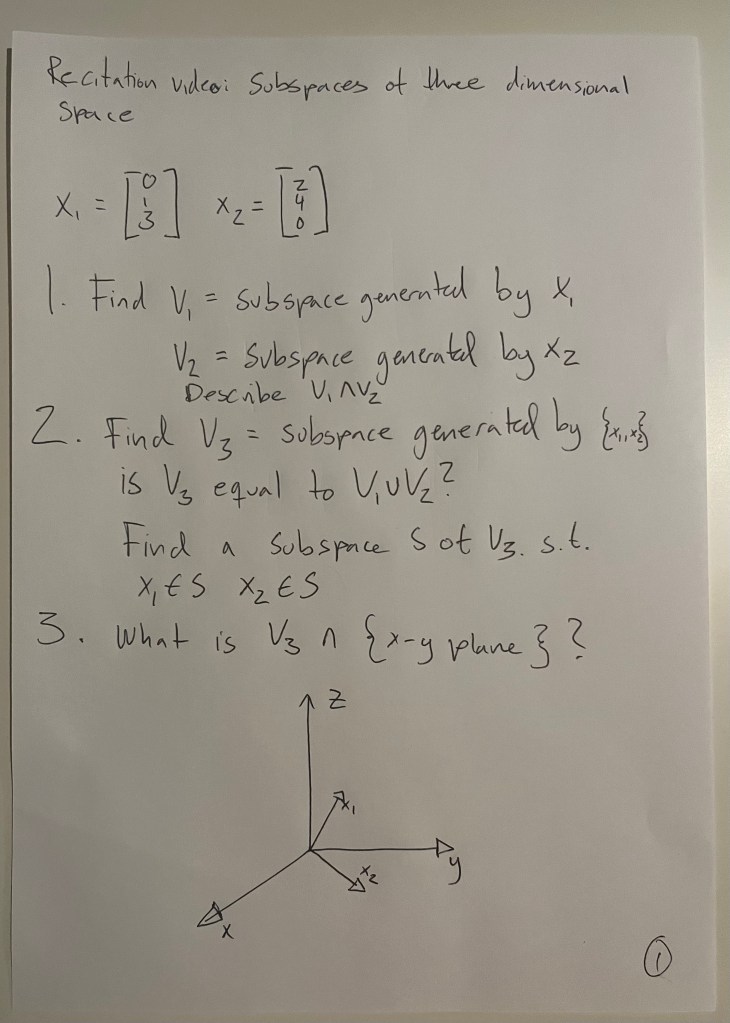 Recitation video: Subspaces of three dimensional
Space
X₁ = [0 1 3] X₂ = [2 4 0]
1. Find V₁ = subspace generated by X₁
V₂ = subspace generated by X₂
Describe V₁ ∩ V₂
2. Find V₃ = subspace generated by {x₁, x₂}
is V₃ equal to V₁ ∪ V₂?
Find a subspace S of V₃. s.t.
X₁ ∈ S X₂ ∈ S
3. What is V₃ ∩ {x-y plane}?
z
x₁
y
x₂
x
①